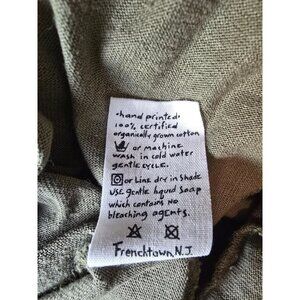 •hand printed•
100% certified
organically grown cotton
or machine
wash in cold water
gentle cycle.
or Line dry in Shade
use gentle liquid soap
which contains no
bleaching agents.
Frenchtown, N.J.